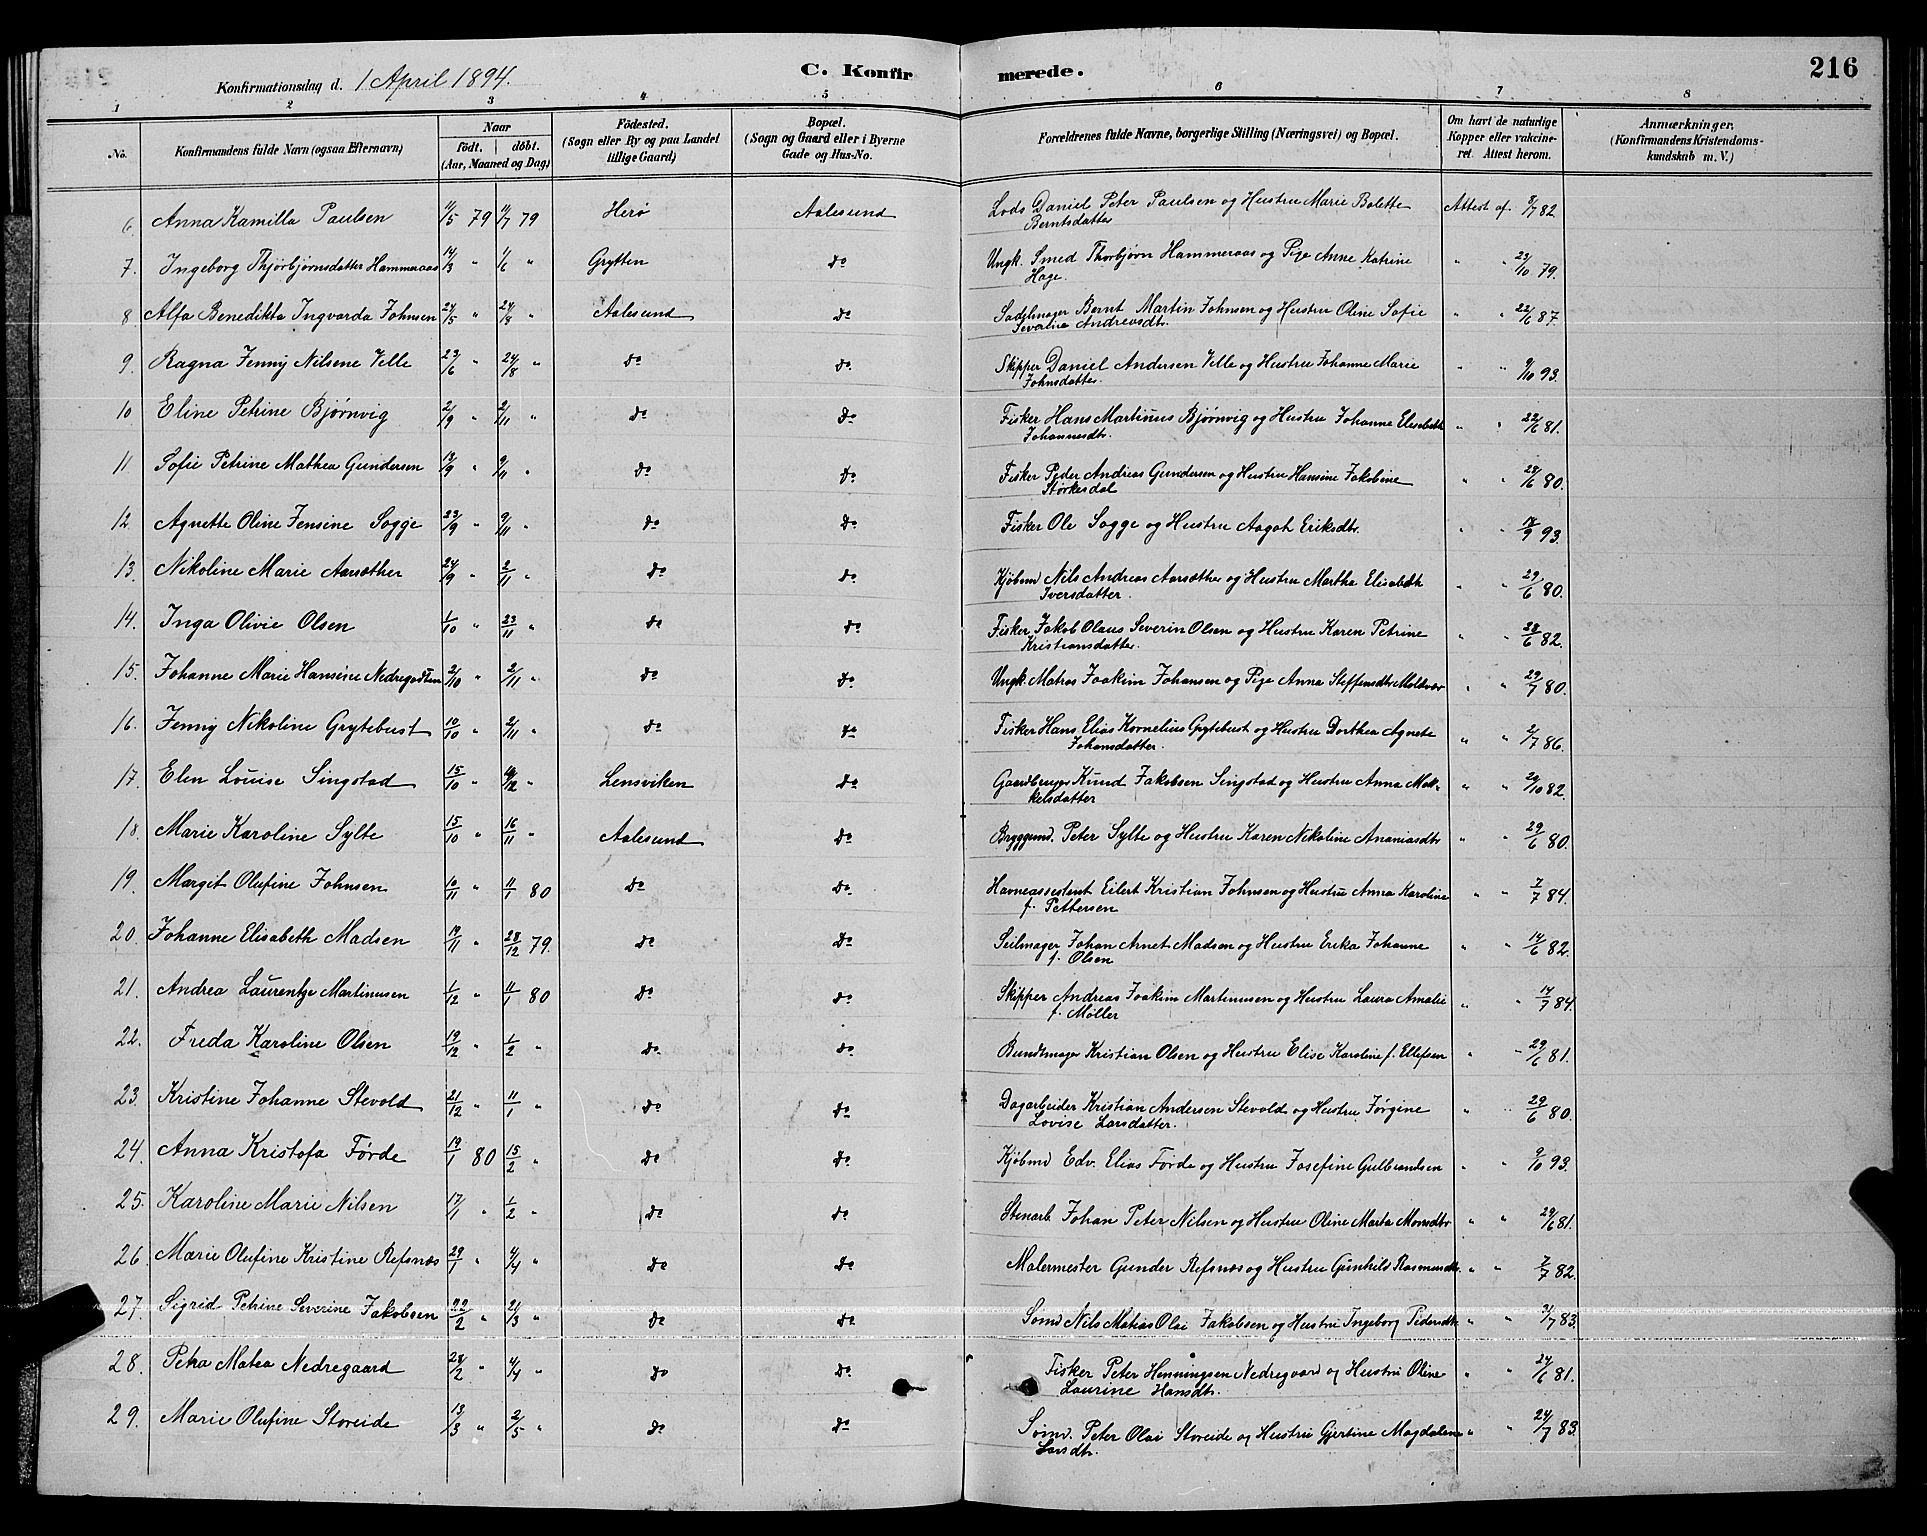 Konfirmationsdag d. 1 April 1894. C. Konfirmerede. 216
1 2 3 4 5 6 7 8
No. Konfirmandens fulde Navn (ogsaa Efternavn) Naar födt. döbt. (Aar, Maaned og Dag) Födested. (Sogn eller By og paa Landet tillige Gaard) Bopæl. (Sogn og Gaard eller i Byerne Gade og Hus-No. Forældrenes fulde Navne, borgerlige Stilling (Næringsvei) og Bopæl. Om havt de naturlige Kopper eller vakcineret. Attest herom. Anmærkninger. (Konfirmandens Kristendomskundskab m. V.)
6. Anna Kamilla Paulsen 11/5 79 11/7 79 Herö Aalesund Lods Daniel Peter Paulsen og Hustru Marie Bolette Attest af 3/7 82
Berntsdatter
7. Ingeborg Thjorbjørnsdatter Hammeraas 14/3 " 1/6 " Grytten do Ungk. Smed Thorbjørn Hammeraas og Pige Anne Katrine " " 29/10 79.
Hage.
8 Alfa Benedikta Ingvarda Johnsen 24/5 " 24/8 " Aalesund do Sadelmager Bernt Martin Johnsen og Hustru Oline Sofie " " 22/6 87.
Sevalia Andreasdtr.
9. Ragna Jenny Nilsene Velle 23/6 " 24/8 " do do Skipper Daniel Andersen Velle og Hustru Johanne Marie " " 9/10 93.
Johnsdatter.
10 Eline Petrine Bjørnvig 2/9 " 2/11 " do do Fisker Hans Martinus Bjørnvig og Hustru Johanne Elisabeth " " 22/6 81.
Johannesdtr.
11. Sofie Petrine Mathea Gundersen 13/9 " 9/11 " do do Fisker Peder Andreas Gundersen og Hustru Hansine Jakobine " " 28/6 80.
Størkesdal
12. Agnette Oline Jensine Sogge 23/9 " 9/11 " do do Fisker Ole Sogge og Hustru Aagot Eriksdtr. " " 18/9 93.
13. Nikoline Marie Aarsæther 24/9 " 2/11 " do do Kjøbmd Nils Andreas Aarsæther og Hustru Martha Elisabeth " " 29/6 80.
Iversdatter.
14. Inga Olivie Olsen 1/10 " 23/11 " do do Fisker Jakob Olaus Severin Olsen og Hustru Karen Petrine " " 28/6 82.
Kristiansdatter.
15. Johanne Marie Hansine Nedregotten 2/10 " 2/11 " do do Ungk. Matros Joakim Johansen og Pige Anna Steffensdtr Moldvær " " 29/7 80.
16. Jenny Nikoline Grytebust 10/10 " 2/11 " do do Fisker Hans Elias Kornelius Grytebust og Hustru Dorthea Agnete " " 2/7 86.
Johansdatter.
17. Elen Louise Singstad 15/10 " 10/12 " Lensviken do Gaardbruger Knud Jakobsen Singstad og Hustru Anna Mek- " " 29/10 82.
kelsdatter
18. Marie Karoline Sylte 15/10 " 16/11 " Aalesund do Bryggmd. Peter Sylte og Hustru Karen Nikoline Ananiasdtr " " 29/6 80.
19. Margit Olufine Johnsen 10/11 " 11/1 80 do do Havneassestent Eilert Kristian Johnsen og Hustru Anna Karoline " " 7/7 84.
f. Pettersen
20. Johanne Elisabeth Madsen 19/11 " 28/12 79. do do Seilmager Johan Arnet Madsen og Hustru Erika Johanne " " 14/6 82.
f. Olsen
21. Andrea Laurentze Martinusen 1/12 " 11/1 80 do do Skipper Andreas Joakim Martinusen og Hustru Laura Amalie " " 14/7 84.
f. Møller
22. Freda Karoline Olsen 19/12 " 1/2 " do do Bundtmager Kristian Olsen og Hustru Elise Karoline f. Ellefsen " " 29/6 81.
23. Kristine Johanne Stevold 21/12 " 11/1 " do do Dagarbeider Kristian Andersen Stevold og Hustru Jørgine " " 29/6 80.
Lovise Larsdatter.
24. Anna Kristofa Førde 19/1 80 15/2 " do do Kjøbmd Edv. Elias Førde og Hustru Josefine Gulbrandsen " " 9/10 93.
25. Karoline Marie Nilsen 17/1 " 1/2 " do do Stenarb. Johan Peter Nilsen og Hustru Oline Marta Monsdtr " " 29/6 81.
26. Marie Olufine Kristine Refsnæs 29/1 " 4/4 " do do Malermester Gunder Refsnæs og Hustru Gunhild Rasmusdtr. " " 7/7 82.
27. Sigrid Petrine Severine Jakobsen 22/2 " 21/3 " do do Sømd Nils Matias Olai Jakobsen og Hustru Ingeborg Pedersdtr " " 31/7 83.
28. Petra Matea Nedregaard 28/2 " 4/4 " do do Fisker Peter Henningsen Nedregaard og Hustru Oline " " 24/6 81.
Laurine Hansdtr.
29. Marie Olufine Storeide 13/3 " 2/5 " do do Sømd. Peter Olai Storeide og Hustru Gjertine Magdalene " " 24/7 83.
Larsdtr.